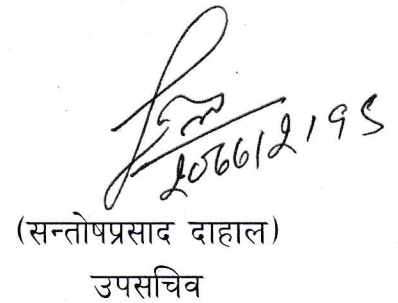 २०७७।२।१५
(सन्तोषप्रसाद दाहाल)
उपसचिव